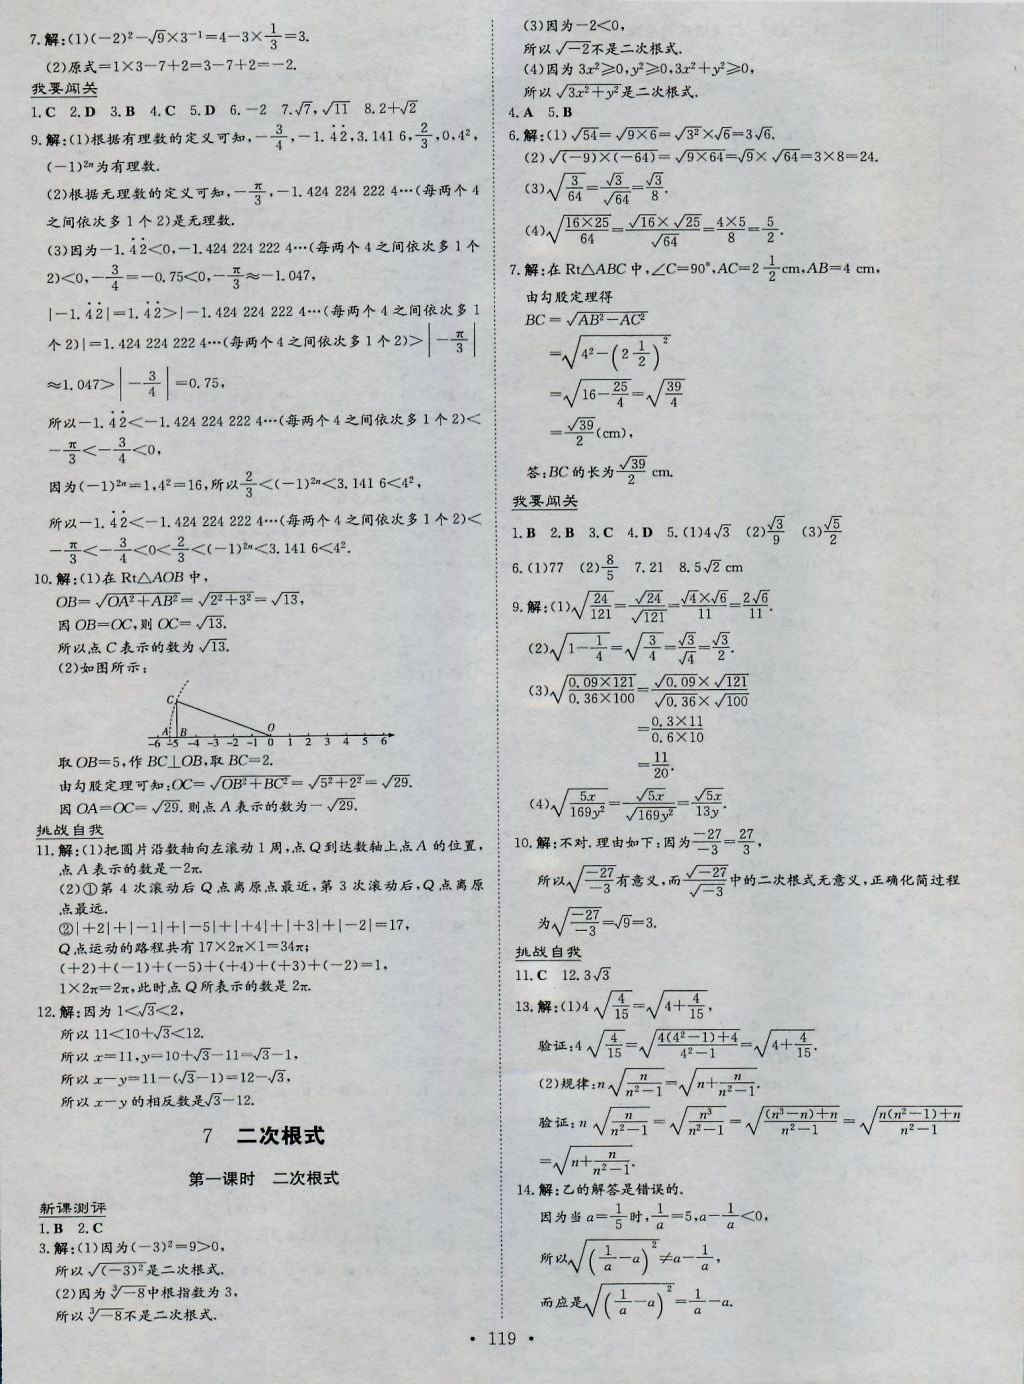 7.解:(1)(−2)²−√9×3⁻¹=4−3×1/3=3.
(2)原式=1×3−7+2=3−7+2=−2.
我要闯关
1.C 2.D 3.B 4.C 5.D 6.−2 7.√7,√11 8.2+√2
9.解:(1)根据有理数的定义可知,−3/4,−1.4̇2̇,3.141 6,2/3,0,4²,
(−1)²ⁿ为有理数.
(2)根据无理数的定义可知,−π/3,−1.424 224 222 4…(每两个4
之间依次多1个2)是无理数.
(3)因为−1.4̇2̇<0,−1.424 224 222 4…(每两个4之间依次多1个
2)<0,−3/4=−0.75<0,−π/3≈−1.047,
|−1.4̇2̇|=1.4̇2̇>|−1.424 224 222 4…(每两个4之间依次多1
个2)|=1.424 224 222 4…(每两个4之间依次多1个2)>|−π/3|
≈1.047>|−3/4|=0.75,
所以−1.4̇2̇<−1.424 224 222 4…(每两个4之间依次多1个2)<
−π/3<−3/4<0,
因为(−1)²ⁿ=1,4²=16,所以2/3<(−1)²ⁿ<3.141 6<4²,
所以−1.4̇2̇<−1.424 224 222 4…(每两个4之间依次多1个2)<
−π/3<−3/4<0<2/3<(−1)²ⁿ<3.141 6<4².
10.解:(1)在Rt△AOB中,
OB=√(OA²+AB²)=√(2²+3²)=√13,
因OB=OC,则OC=√13.
所以点C表示的数为√13.
(2)如图所示:
C
A B O
−6 −5 −4 −3 −2 −1 0 1 2 3 4 5 6
取OB=5,作BC⊥OB,取BC=2.
由勾股定理可知:OC=√(OB²+BC²)=√(5²+2²)=√29.
因OA=OC=√29.则点A表示的数为−√29.
挑战自我
11.解:(1)把圆片沿数轴向左滚动1周,点Q到达数轴上点A的位置,
点A表示的数是−2π.
(2)①第4次滚动后Q点离原点最近,第3次滚动后,Q点离原
点最远.
②|+2|+|−1|+|−5|+|+4|+|+3|+|−2|=17,
Q点运动的路程共有17×2π×1=34π;
(+2)+(−1)+(−5)+(+4)+(+3)+(−2)=1,
1×2π=2π,此时点Q所表示的数是2π.
12.解:因为1<√3<2,
所以11<10+√3<12.
所以x=11,y=10+√3−11=√3−1,
所以x−y=11−(√3−1)=12−√3,
所以x−y的相反数是√3−12.
7 二次根式
第一课时 二次根式
新课测评
1.B 2.C
3.解:(1)因为(−3)²=9>0,
所以√(−3)²是二次根式.
(2)因为∛−8中根指数为3,
所以∛−8不是二次根式.
(3)因为−2<0,
所以√−2不是二次根式.
(4)因为3x²≥0,y²≥0,3x²+y²≥0,
所以√(3x²+y²)是二次根式.
4.A 5.B
6.解:(1)√54=√(9×6)=√3²×√6=3√6.
(2)√((−9)×(−64))=√(9×64)=√9×√64=3×8=24.
(3)√(3/64)=√3/√64=√3/8.
(4)√(16×25/64)=√16×√25/√64=4×5/8=5/2.
7.解:在Rt△ABC中,∠C=90°,AC=2 1/2cm,AB=4 cm,
由勾股定理得
BC=√(AB²−AC²)
=√(4²−(2 1/2)²)
=√(16−25/4)=√(39/4)
=√39/2(cm),
答:BC的长为√39/2 cm.
我要闯关
1.B 2.B 3.C 4.D 5.(1)4√3 (2)√3/9 (3)√5/2
6.(1)77 (2)8/5 7.21 8.5√2 cm
9.解:(1)√(24/121)=√24/√121=√4×√6/11=2√6/11.
(2)√(1−1/4)=√(3/4)=√3/√4=√3/2.
(3)√(0.09×121/0.36×100)=√0.09×√121/√0.36×√100
=0.3×11/0.6×10
=11/20.
(4)√(5x/169y²)=√5x/√169y²=√5x/13y.
10.解:不对.理由如下:因为−27/−3=27/3,
所以√(−27/−3)有意义,而√−27/√−3中的二次根式无意义,正确化简过程
为√(−27/−3)=√9=3.
挑战自我
11.C 12.3√3
13.解:(1)4√(4/15)=√(4+4/15),
验证:4√(4/15)=√((4(4²−1)+4)/(4²−1))=√(4+4/15).
(2)规律:n√(n/(n²−1))=√(n+n/(n²−1)).
验证:n√(n/(n²−1))=√(n³/(n²−1))=√(((n³−n)+n)/(n²−1))=√((n(n²−1)+n)/(n²−1))
=√(n+n/(n²−1)).
14.解:乙的解答是错误的.
因为当a=1/5时,1/a=5,a−1/a<0,
所以√((1/a−a)²)≠a−1/a,
而应是√((1/a−a)²)=1/a−a.
• 119 •